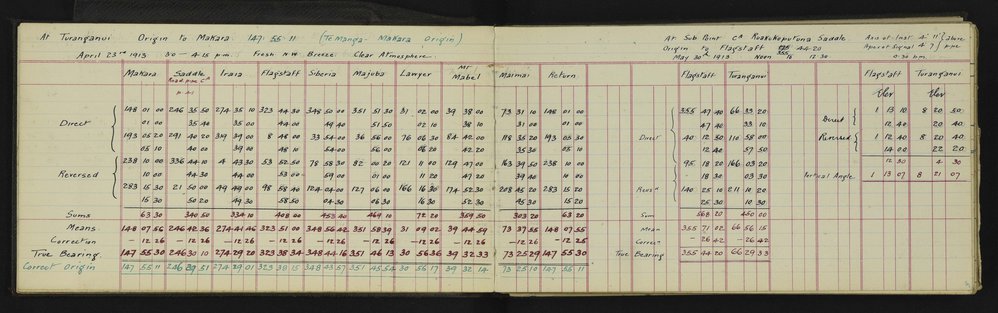 At Turanganui Origin to Makara 147·55·11 (Te Manga - Makara Origin)
April 23rd 1913. 3.0 — 4.15 p.m. Fresh N.W. Breeze Clear Atmosphere
Makara Saddle Iraia Flagstaff Siberia Majuba Lawyer Mr Mabel Maimai Return
148 01 00 246 35 50 274 35 10 323 44 30 348 50 00 351 51 30 31 02 00 39 38 00 73 31 10 148 01 00
01 00 35 40 35 00 44 00 49 40 51 50 02 10 38 10 31 10 01 00
Direct
193 05 20 291 40 20 319 39 00 8 48 00 33 54 00 36 56 00 76 06 30 84 42 00 118 35 20 193 05 30
05 10 40 00 39 00 48 10 54 00 56 00 06 20 42 20 35 30 05 10
238 10 00 336 44 10 4 43 30 53 52 50 78 58 30 82 00 20 121 11 00 129 47 00 163 39 50 238 10 00
10 00 44 30 44 00 53 00 59 00 01 00 11 20 47 20 39 40 10 00
Reversed
283 15 30 21 50 00 49 49 00 98 58 40 124 04 00 127 06 00 166 16 30 174 52 30 208 45 20 283 15 20
15 30 50 20 49 30 58 50 04 30 06 30 16 30 52 30 45 30 15 20
Sums 63 30 340 50 334 10 408 00 453 40 469 10 72 20 359 50 303 20 63 20
Means 148 07 56 246 42 36 274 41 46 323 51 00 348 56 42 351 58 39 31 09 02 39 44 59 73 37 55 148 07 55
Correction - 12 26 - 12 26 - 12 26 - 12 26 - 12 26 - 12 26 - 12 26 - 12 26 - 12 26 - 12 25
True Bearing 147 55 30 246 30 10 274 29 20 323 38 34 348 44 16 351 46 13 30 56 36 39 32 33 73 25 29 147 55 30
Correct Origin 147 55 11 246 29 51 274 29 01 323 38 15 348 43 57 351 45 54 30 56 17 39 32 14 73 25 10 147 55 11
At Sub Point Cd Ruakokoputuna Saddle.
Origin to Flagstaff 355 44·20
May 30th 1913 Noon to 12·30
Axis of Inst 4' 11" above
Apex of Signal 4' 7" pipe
0·30 p.m.
Flagstaff Turanganui
355 47 40 66 33 20
47 40 33 10
Direct 40 12 50 110 58 00
12 40 57 50
95 18 20 166 03 20
18 30 03 30
Revsd 140 25 10 211 10 20
25 30 10 30
Sum 568 20 450 00
Mean 355 71 02 66 56 15
Correctn - 26 42 - 26 42
True Bearing 355 44 20 66 29 33
Flagstaff Turanganui
Elev Elev
Direct 1 13 10 8 20 50
12 40 20 40
Reversed 1 12 40 8 20 40
14 00 22 20
12 30 4 30
Vertical Angle 1 13 07 8 21 07